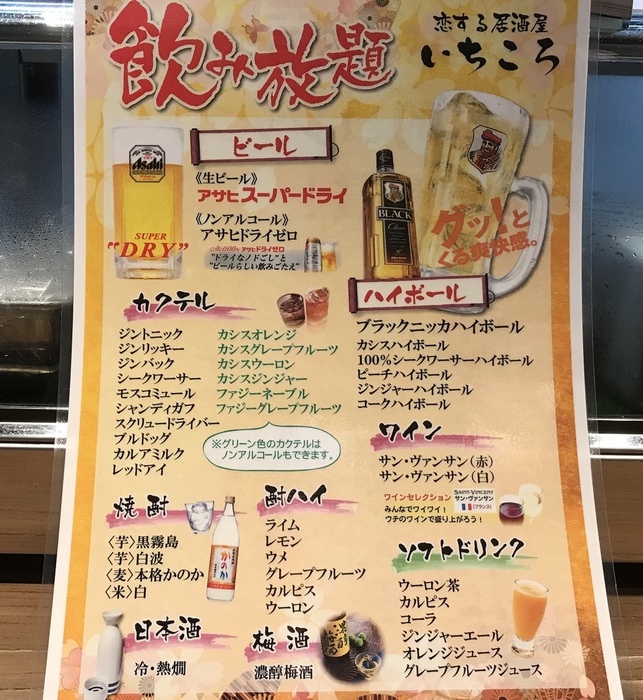 飲み放題
恋する居酒屋
いちころ
ビール
《生ビール》
アサヒスーパードライ
《ノンアルコール》
アサヒドライゼロ
"ドライなノドごし"と
"ビールらしい飲みごたえ"
Asahi
SUPER
"DRY"
BLACK
Clear
グッ!と
くる爽快感。
カクテル
ジントニック
ジンリッキー
ジンバック
シークワーサー
モスコミュール
シャンディガフ
スクリュードライバー
ブルドッグ
カルアミルク
レッドアイ
カシスオレンジ
カシスグレープフルーツ
カシスウーロン
カシスジンジャー
ファジーネーブル
ファジーグレープフルーツ
※グリーン色のカクテルは
ノンアルコールもできます。
ハイボール
ブラックニッカハイボール
カシスハイボール
100%シークワーサーハイボール
ピーチハイボール
ジンジャーハイボール
コークハイボール
ワイン
サン・ヴァンサン(赤)
サン・ヴァンサン(白)
ワインセレクション
みんなでワイワイ!
ウチのワインで盛り上がろう!
SAINT-VINCENT
サン・ヴァンサン
(フランス)
焼酎
〈芋〉黒霧島
〈芋〉白波
〈麦〉本格かのか
〈米〉白
かのか
酎ハイ
ライム
レモン
ウメ
グレープフルーツ
カルピス
ウーロン
ソフトドリンク
ウーロン茶
カルピス
コーラ
ジンジャーエール
オレンジジュース
グレープフルーツジュース
日本酒
冷・熱燗
梅酒
濃醇梅酒